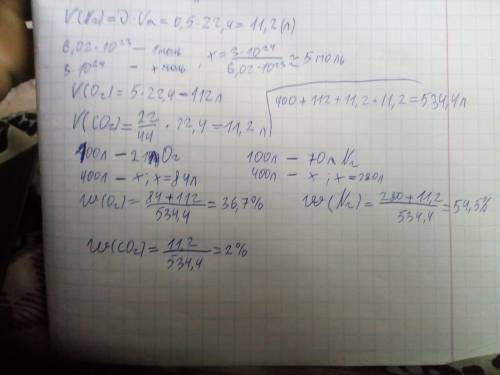 V(N₂) = ν · Vm = 0,5 · 22,4 = 11,2 (л)
6,02 · 10²³ – 1 моль
3 · 10²⁴ – x моль, x = 3 · 10²⁴ / 6,02 · 10²³ ≈ 5 моль
V(O₂) = 5 · 22,4 = 112 л
400 + 112 + 11,2 + 11,2 = 534,4 л
V(CO₂) = 22/44 · 22,4 = 11,2 л
100 л – 21 л O₂
400 л – x; x = 84 л
100 л – 70 л N₂
400 л – x; x = 280 л
W(O₂) = 84 + 112 / 534,4 = 36,7%
W(N₂) = 280 + 11,2 / 534,4 = 54,5%
W(CO₂) = 11,2 / 534,4 = 2%